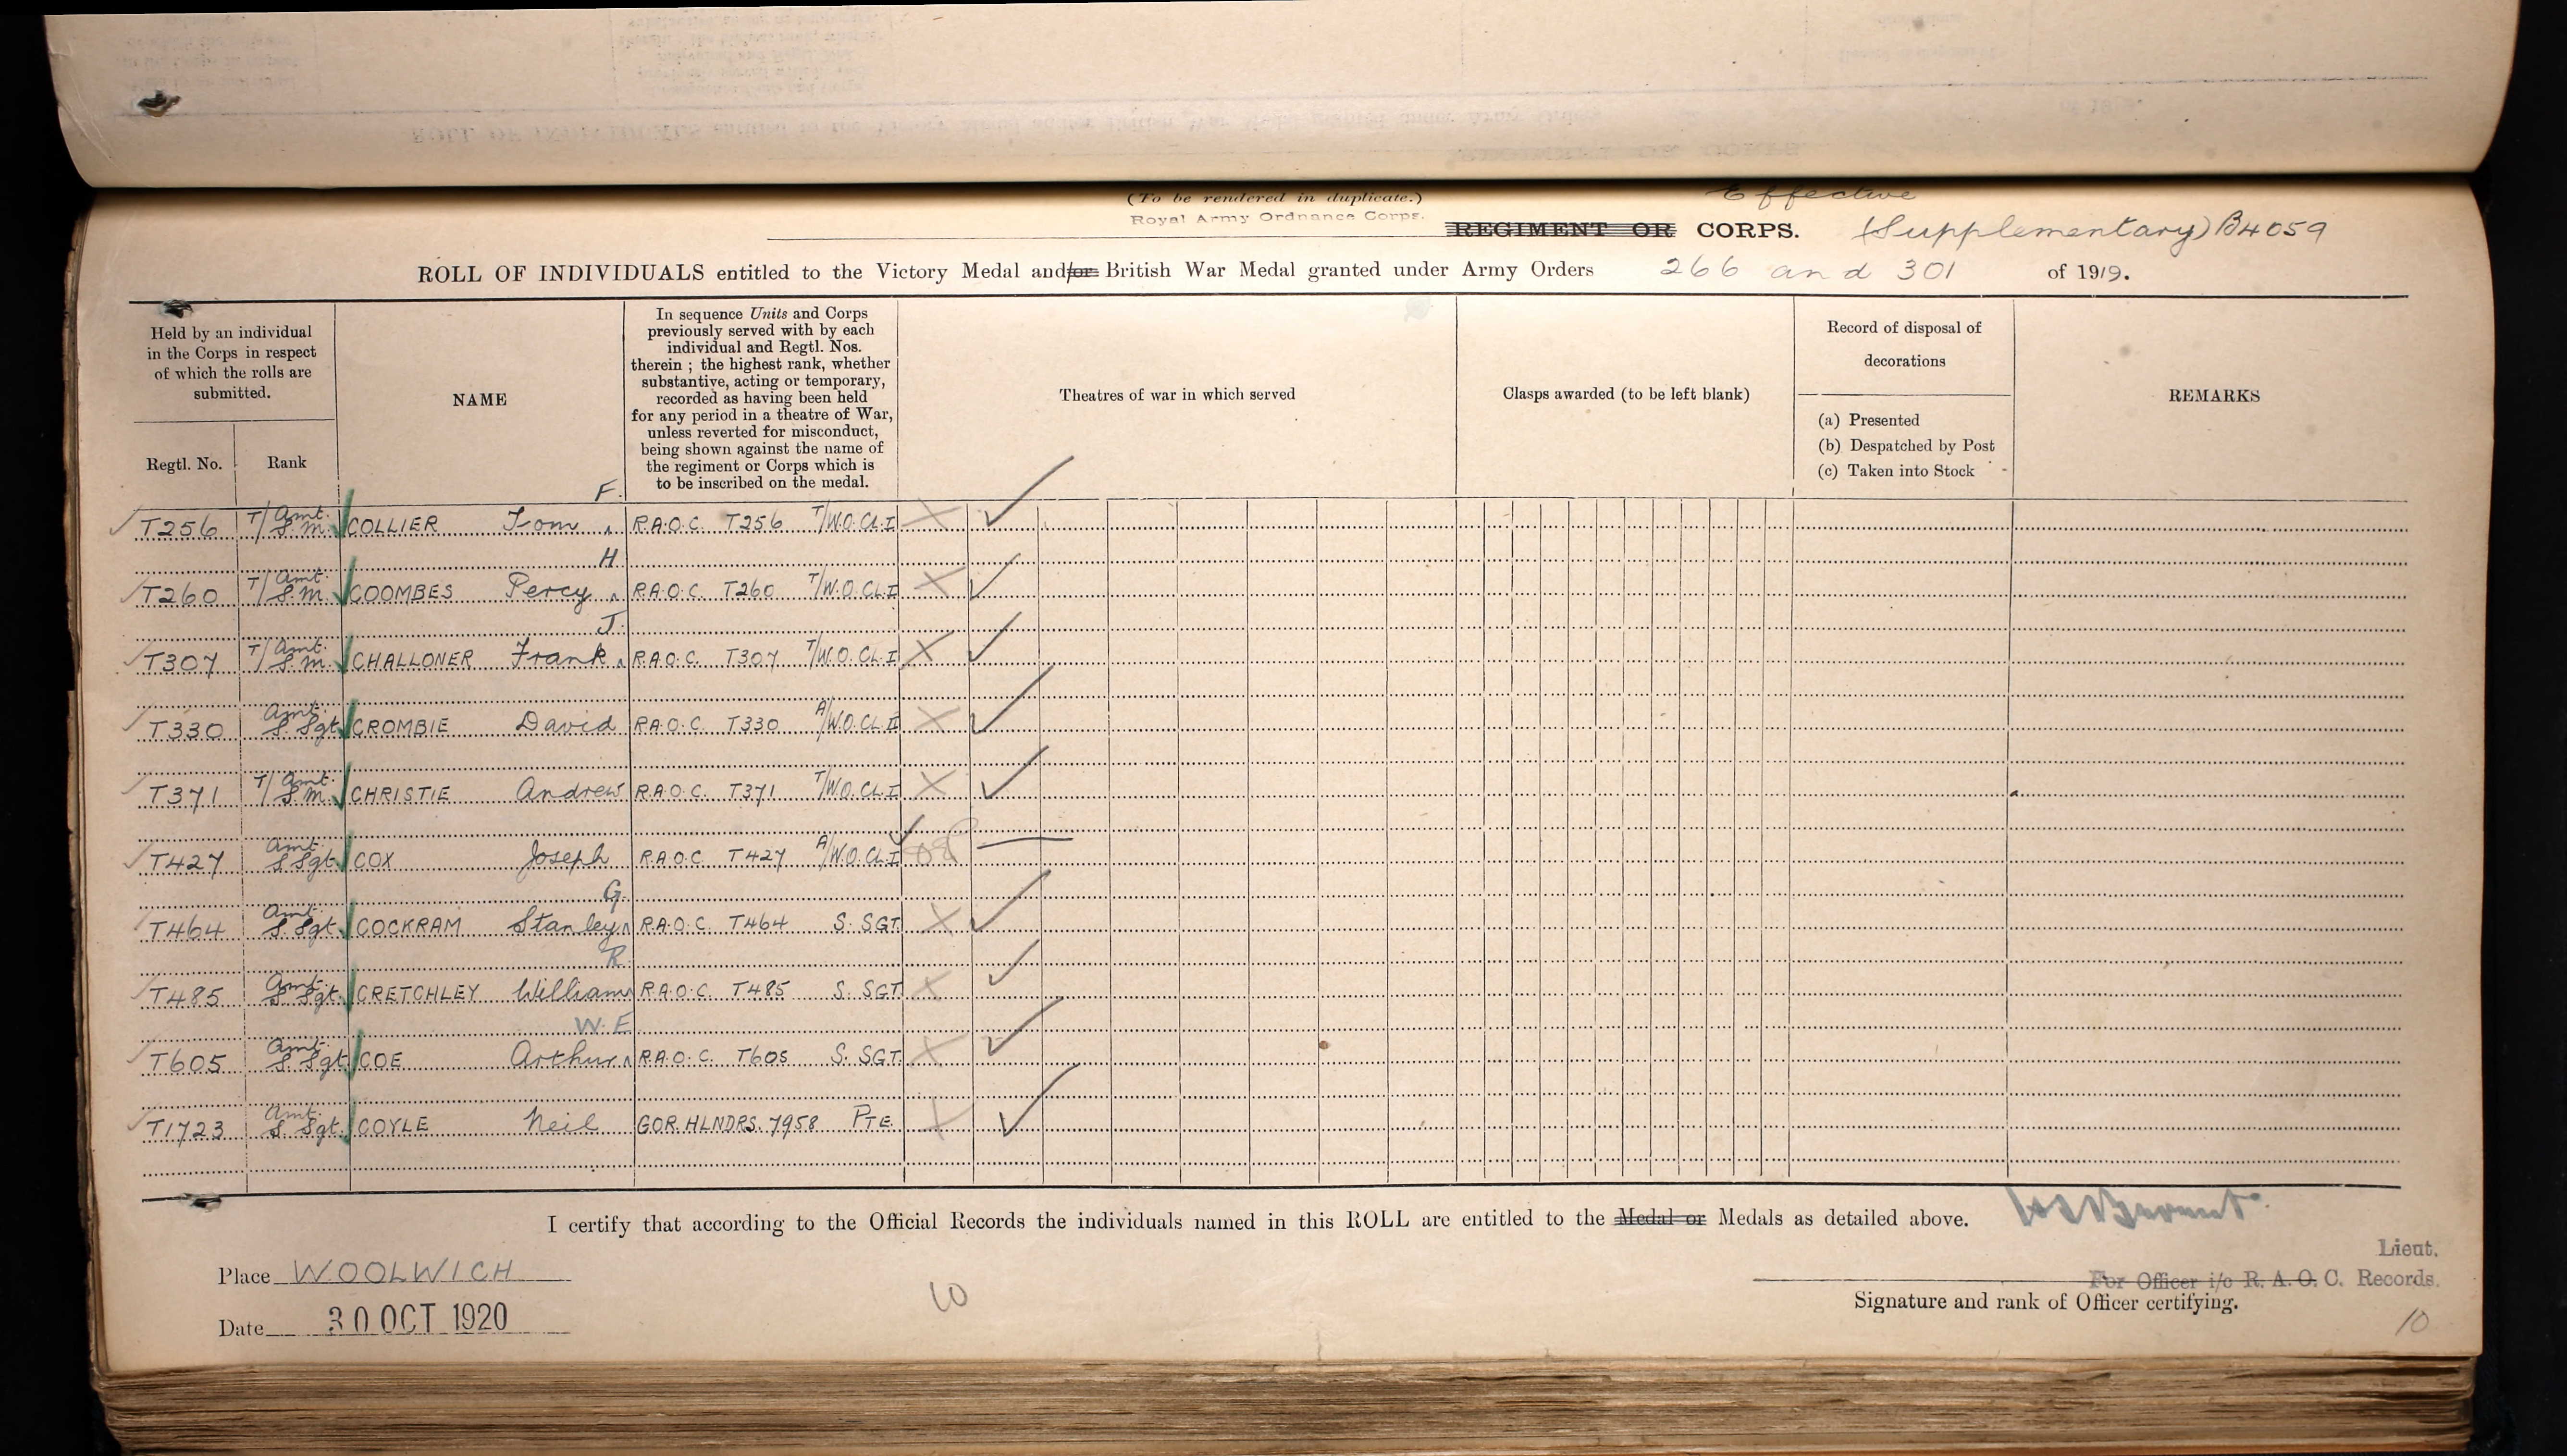 (To be rendered in duplicate.)
Effective
Royal Army Ordnance Corps.
REGIMENT OR CORPS. (Supplementary) B4059
ROLL OF INDIVIDUALS entitled to the Victory Medal and/or British War Medal granted under Army Orders 266 and 301 of 1919.
Held by an individual
in the Corps in respect
of which the rolls are
submitted.
Regtl. No.
Rank
NAME
In sequence Units and Corps
previously served with by each
individual and Regtl. Nos.
therein ; the highest rank, whether
substantive, acting or temporary,
recorded as having been held
for any period in a theatre of War,
unless reverted for misconduct,
being shown against the name of
the regiment or Corps which is
to be inscribed on the medal.
Theatres of war in which served
Clasps awarded (to be left blank)
Record of disposal of
decorations
(a) Presented
(b) Despatched by Post
(c) Taken into Stock
REMARKS
F.
T256 T/Amt. S.M. COLLIER Tom R.A.O.C. T256 T/W.O.CL.I
H
T260 T/Amt. S.M. COOMBES Percy R.A.O.C. T260 T/W.O.CL.I
J.
T307 T/Amt. S.M. CHALLONER Frank R.A.O.C. T307 T/W.O.CL.I
T330 Amt. S. Sgt CROMBIE David R.A.O.C. T330 A/W.O.CL.I
T371 T/Amt. S.M. CHRISTIE Andrew R.A.O.C. T371 T/W.O.CL.I
T427 Amt. S. Sgt. COX Joseph R.A.O.C. T427 A/W.O.CL.I
G.
T464 Amt. S. Sgt. COCKRAM Stanley R.A.O.C. T464 S. SGT.
R.
T485 Amt. S. Sgt. CRETCHLEY William R.A.O.C. T485 S. SGT.
W. E.
T605 Amt. S. Sgt COE Arthur R.A.O.C. T605 S. SGT.
T1723 Amt. S. Sgt. COYLE Neil GOR. HLNDRS. 7958 PTE
I certify that according to the Official Records the individuals named in this ROLL are entitled to the Medal or Medals as detailed above.
Lieut.
Place WOOLWICH
For Officer i/c R. A. O. C. Records.
Signature and rank of Officer certifying.
Date 30 OCT 1920
10
10